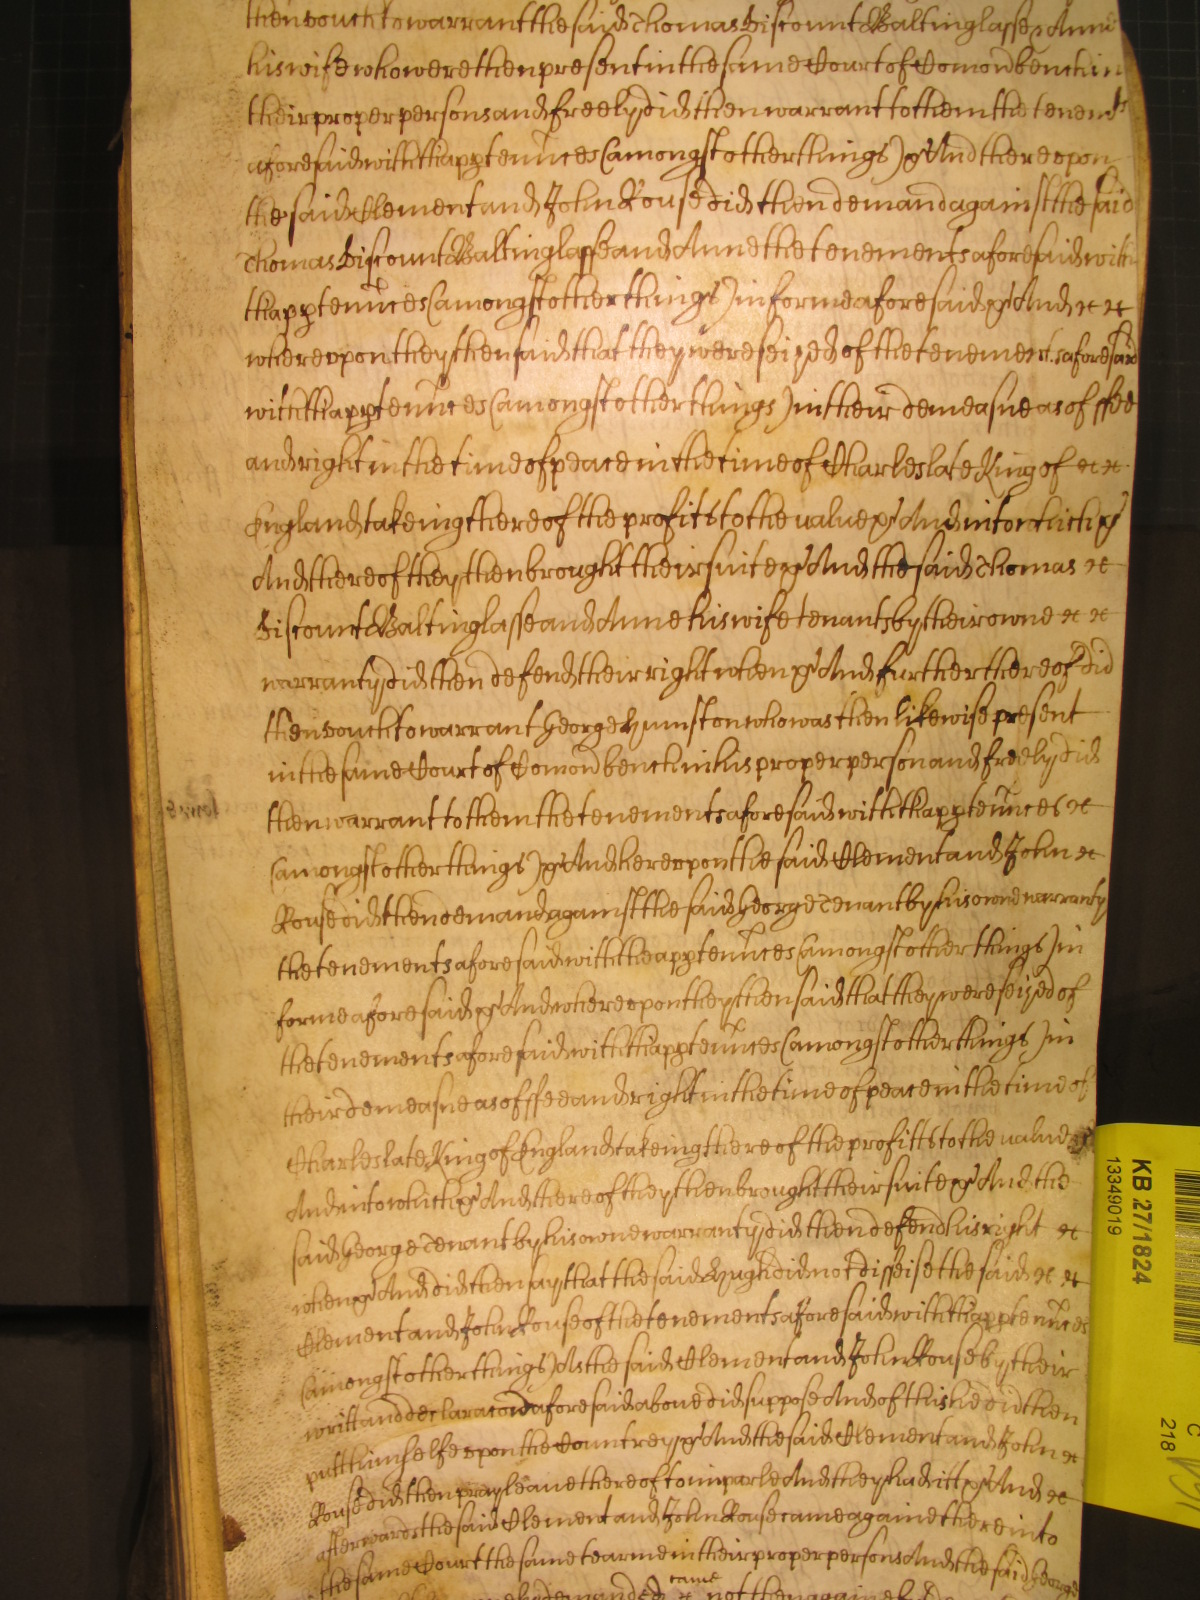 then vouch to warrant the said Thomas Viscount Baltinglasse & Anne
his wife who were then present in the same Court of Comon bench in
their proper persons and freely did then warrant to them the tenemts
aforesaid with thapptennces (amongst other things) &c And thereupon
the said Clement and John Rouse did then demand against the said
Thomas Viscount Baltinglasse and Anne the tenements aforesaid with
thapptennces (amongst other things) in forme aforesaid &c And &c &c
whereupon they then said that they were seized of the tenements aforesaid
with thapptennces (amongst other things) in their demeasne as of ffee
and right in the time of peace in the time of Charles late King of &c &c
England takeing thereof the profitts to the value &c And into which &c
And thereof they then brought their suite &c And the said Thomas &c
Viscount Baltinglasse and Anne his wife tenants by their owne &c &c
warranty did then defend their right when &c And further thereof did
then vouch to warrant George Humston who was then likewise present
in the same Court of Comon bench in his proper person and freely did
then warrant to them the tenements aforesaid with thapptennces &c
(amongst other things) &c And hereupon the said Clement and John &c
Rouse did then demand against the said George Tenant by his owne warranty
the tenements aforesaid with the apptennces (amongst other things) in
forme aforesaid &c And whereupon they then said that they were seized of
the tenements aforesaid with thapptennces (amongst other things) in
their demeasne as of ffee and right in the time of peace in the time of
Charles late King of England takeing thereof the profitts to the value &c
And into which &c And thereof they then brought their suite &c And the
said George Tenant by his owne warranty did then defend his right &c
when &c And did then say that the said Hugh did not disseise the said &c &c
Clement and John Rouse of the tenements aforesaid with thapptennces
(amongst other things) As the said Clement and John Rouse by their
writt and declaracon aforesaid above did suppose And of this he did then
putt himselfe upon the Countrey &c And the said Clement and John &c
Rouse did then pray leave thereof to imparle And they had itt &c And &c
afterwards the said Clement and John Rouse came againe there into
the same Court the same tearme in their proper persons And the said George
demanded came not then againe
KB 27/1824
13349019
218